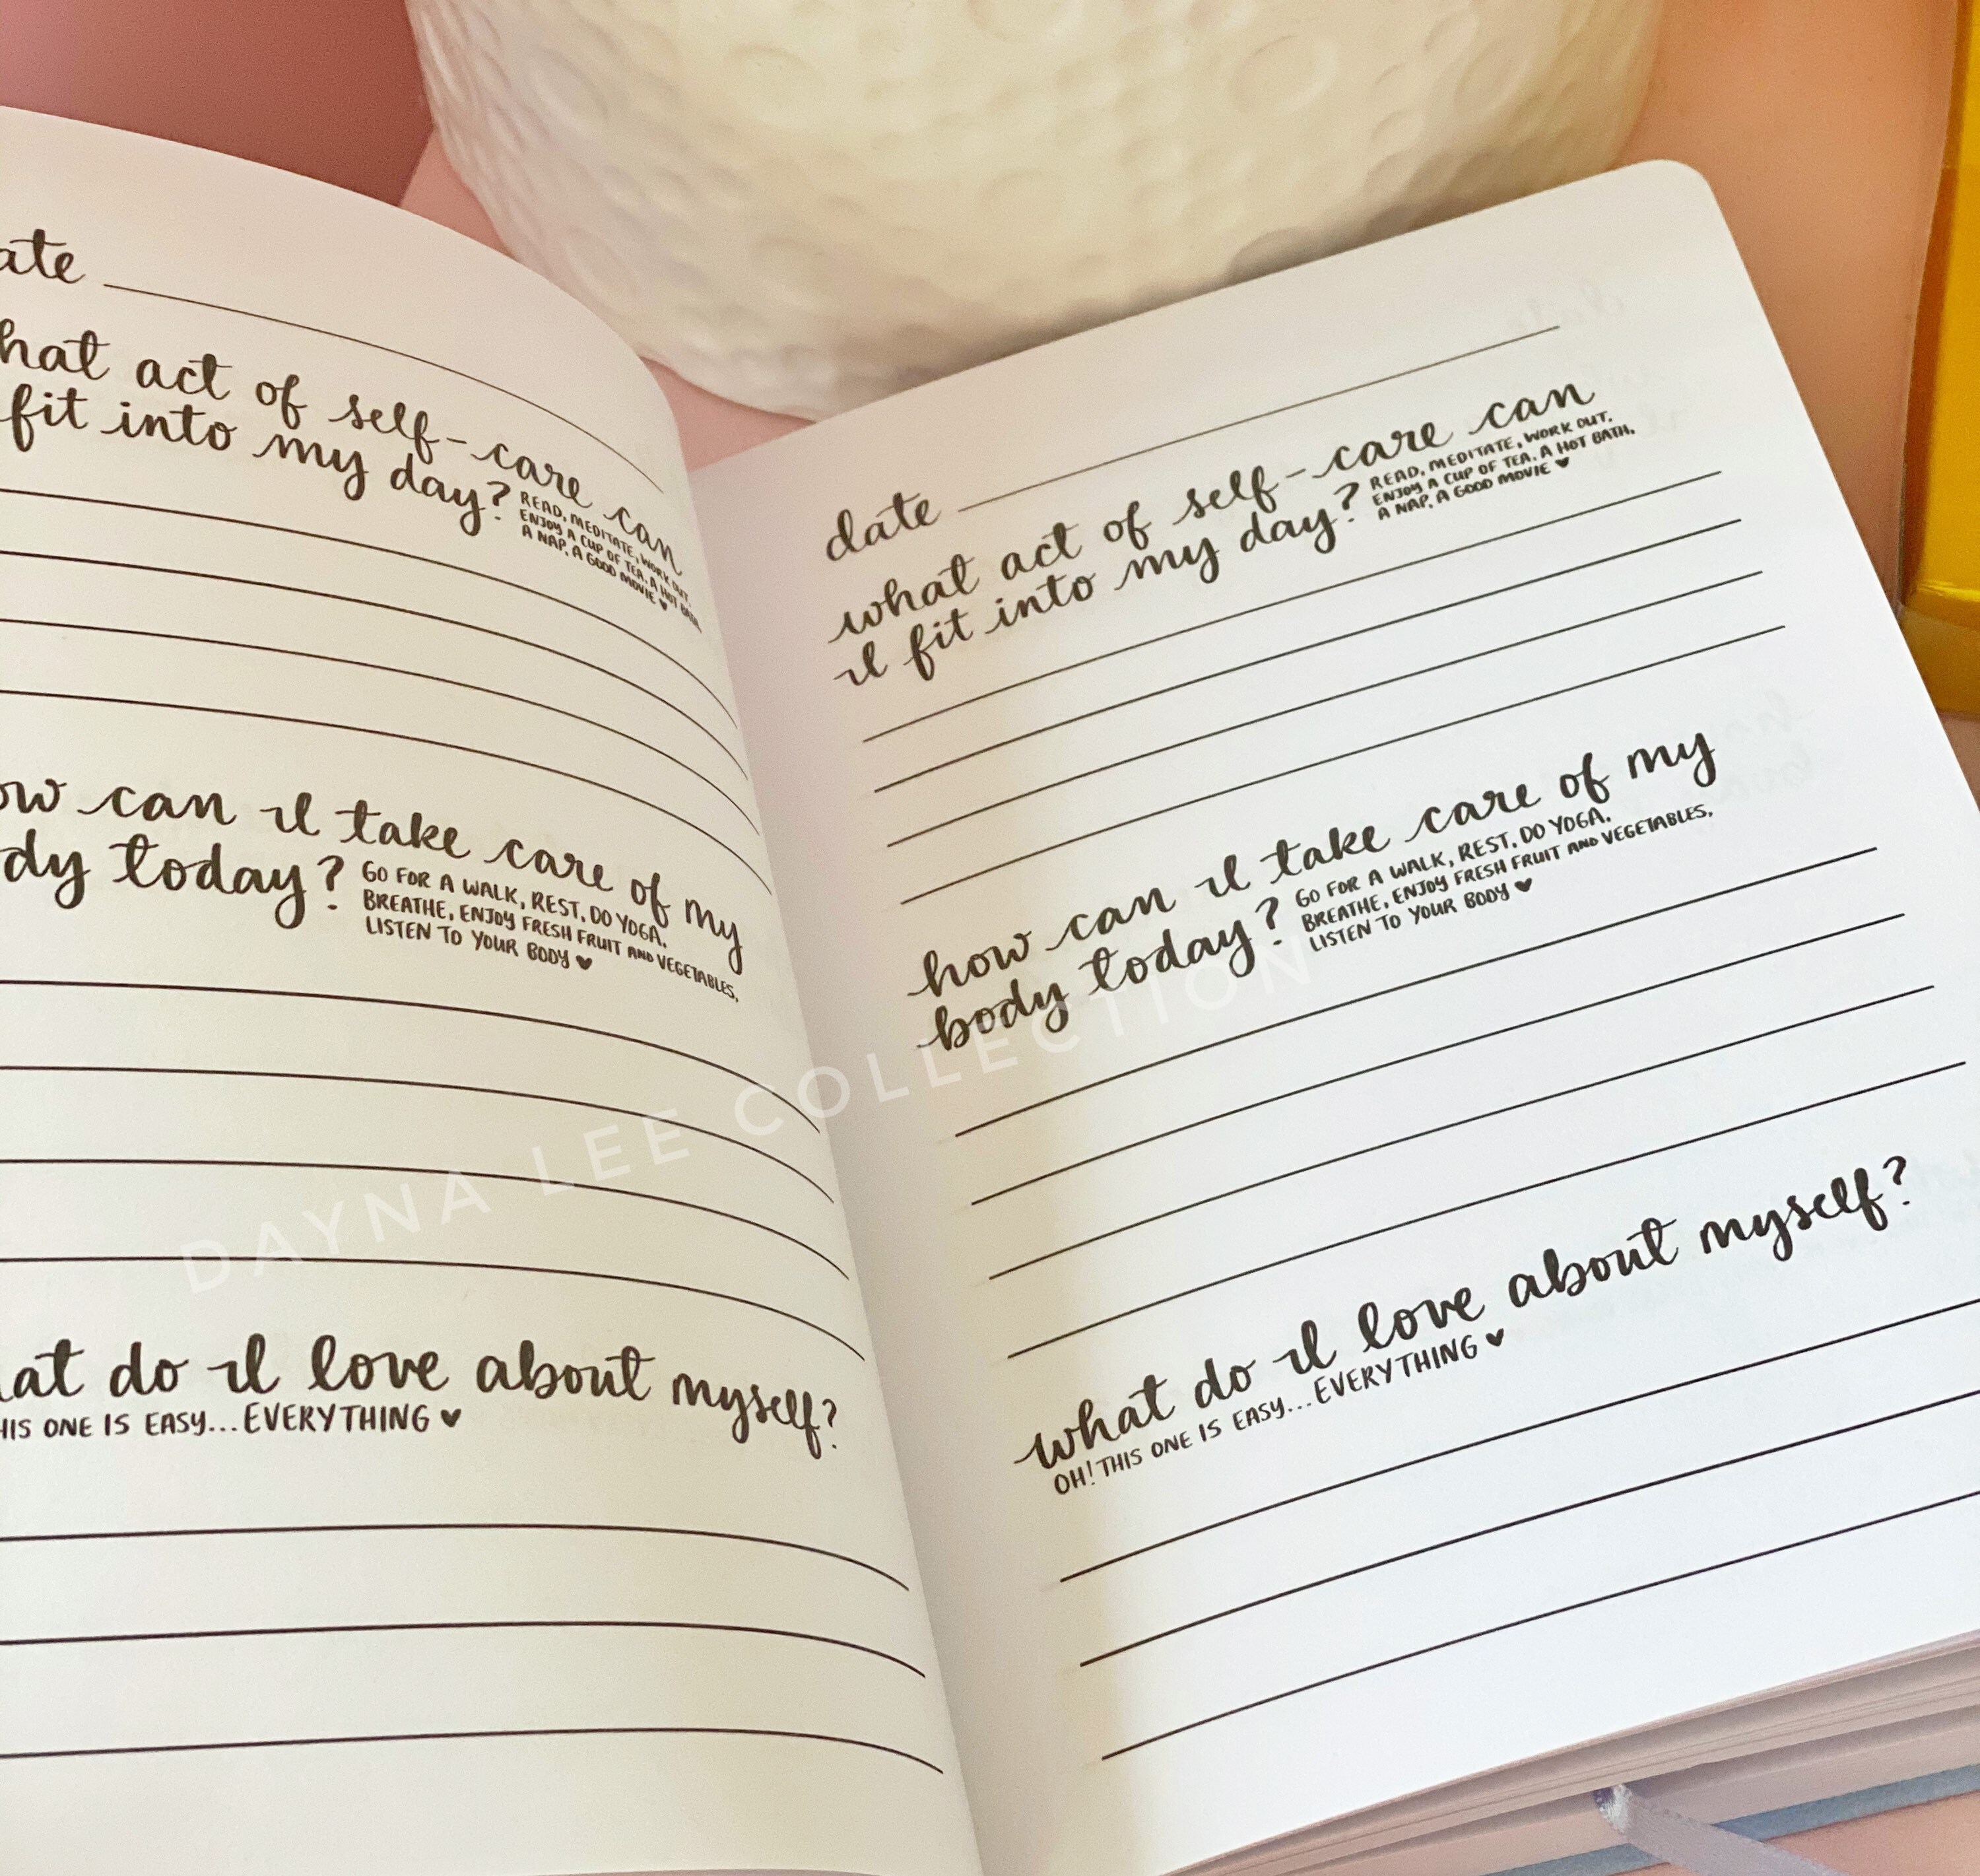 ate
hat act of self-care can
fit into my day?
READ, MEDITATE, WORK OUT,
ENJOY A CUP OF TEA, A HOT BATH,
A NAP, A GOOD MOVIE ♥
ow can I take care of my
dy today?
GO FOR A WALK, REST, DO YOGA,
BREATHE, ENJOY FRESH FRUIT AND VEGETABLES,
LISTEN TO YOUR BODY ♥
at do I love about myself?
HIS ONE IS EASY...EVERYTHING ♥
date
what act of self-care can
I fit into my day?
READ, MEDITATE, WORK OUT,
ENJOY A CUP OF TEA, A HOT BATH,
A NAP, A GOOD MOVIE ♥
how can I take care of my
body today?
GO FOR A WALK, REST, DO YOGA,
BREATHE, ENJOY FRESH FRUIT AND VEGETABLES,
LISTEN TO YOUR BODY ♥
what do I love about myself?
OH! THIS ONE IS EASY...EVERYTHING ♥
DAYNA LEE COLLECTION